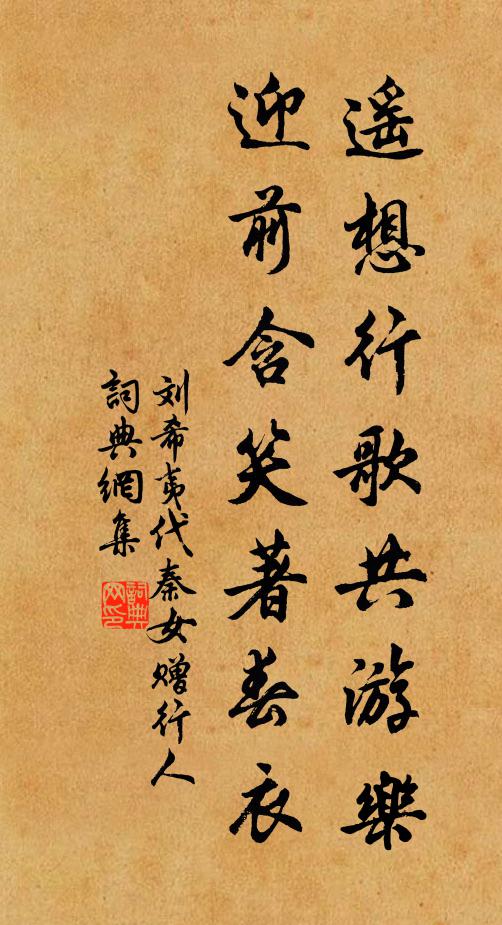 遥想行歌共游樂
迎前含笑著春衣
刘希夷代秦女赠行人
詞典網集
詞典网印